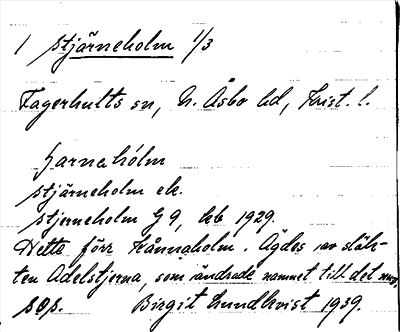 1 Stjärneholm 1/3
Fagerhults sn, N. Åsbo hd, Krist. l.
stjärneholm ek.
stjerneholm G 9, kb 1929.
Hette förr Rånnaholm. Ägdes av släk-
ten Adelstjerna, som ändrade namnet till det nuv.
Birgit Lundkvist 1939.